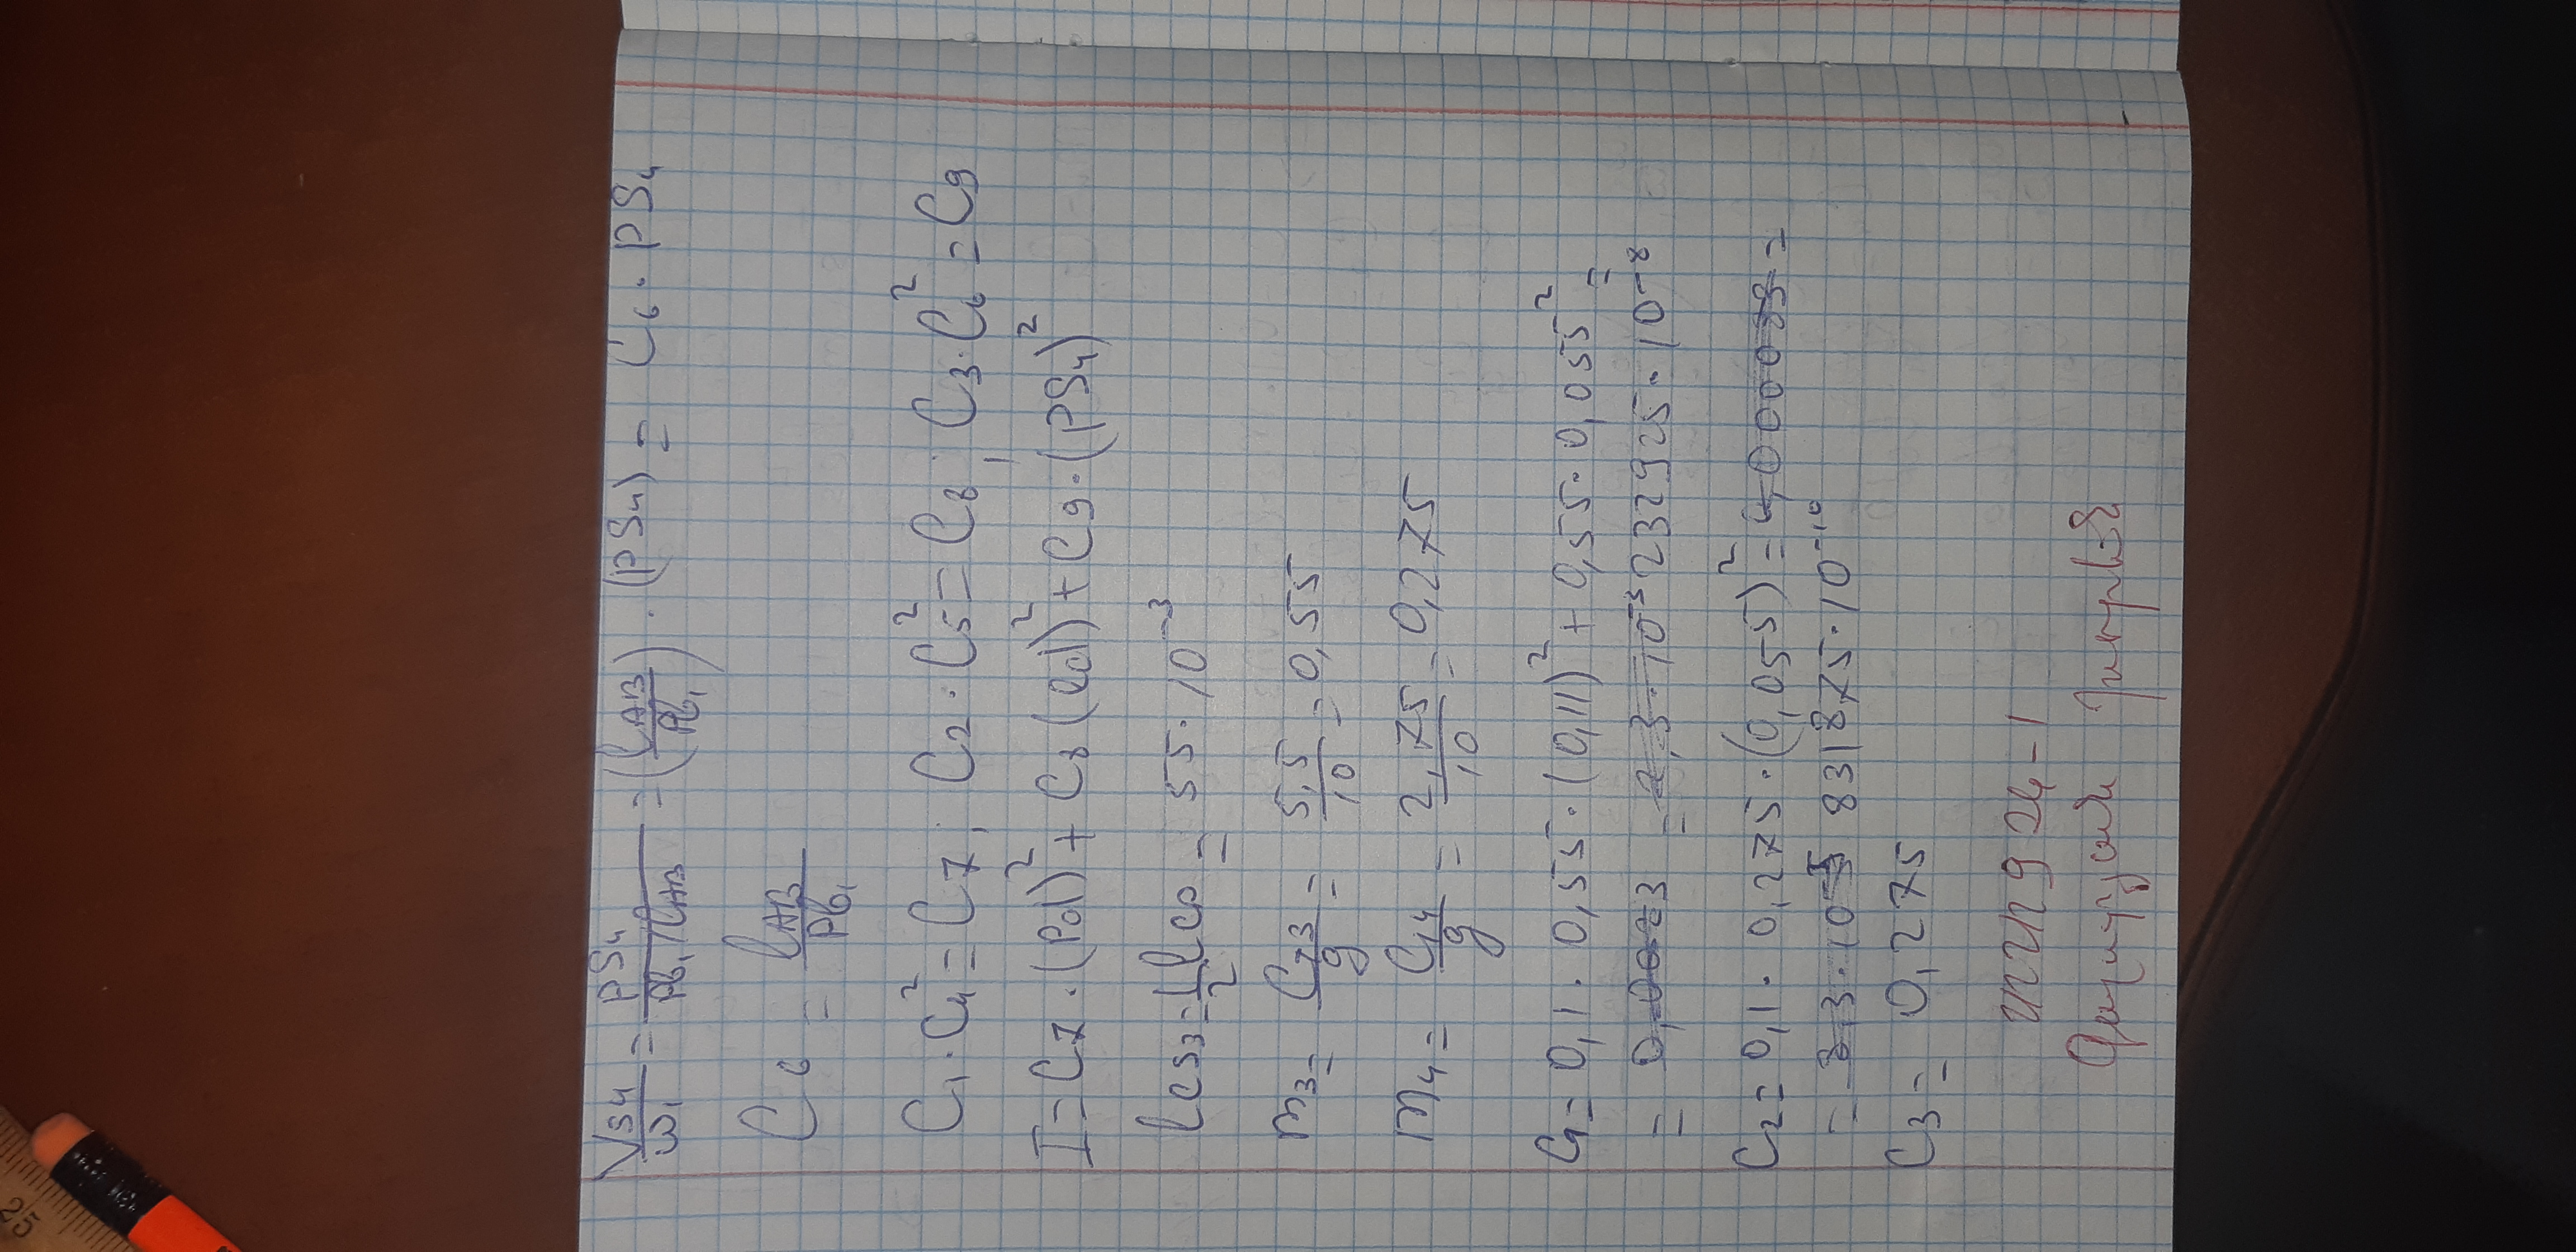 25
Vs4/ω1 = PS4/(Pb1/lAB) = (lAB/Pb1) · (PS4) = C6 · PS4
C6 = lAB/Pb1
C1 · C4² = C7; C2 · C5² = C8; C3 · C6² = C9
I = C7 · (Pd)² + C8 (ed)² + C9 · (PS4)²
lCS3 = 1/2 lCD = 55 · 10⁻³
m3 = G3/g = 5,5/10 = 0,55
m4 = G4/g = 2,75/10 = 0,275
C1 = 0,1 · 0,55 · (0,11)² + 0,55 · 0,055² =
= 0,0023 = 2,3 · 10⁻³ 232925 · 10⁻⁸
C2 = 0,1 · 0,275 · (0,055)² = 0,000083 =
= 8,3 · 10⁻⁵ 831875 · 10⁻¹⁰
C3 = 0,275
924-1